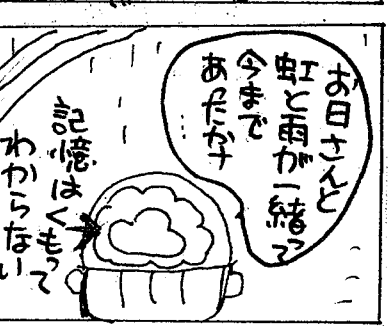 お日さんと
虹と雨が一緒って
今まで
あったかナ
記憶はくもって
わからない